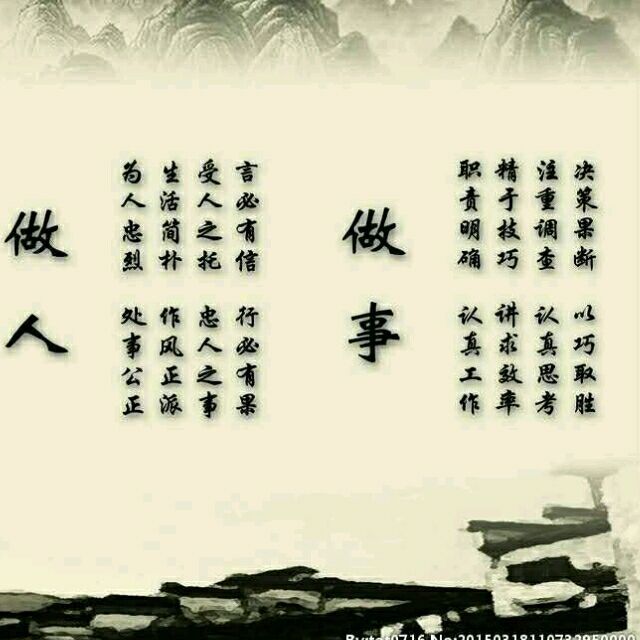 做人
为人忠烈 处事公正
生活简朴 作风正派
受人之托 忠人之事
言必有信 行必有果
做事
职责明确 认真工作
精于技巧 讲求效率
注重调查 认真思考
决策果断 以巧取胜